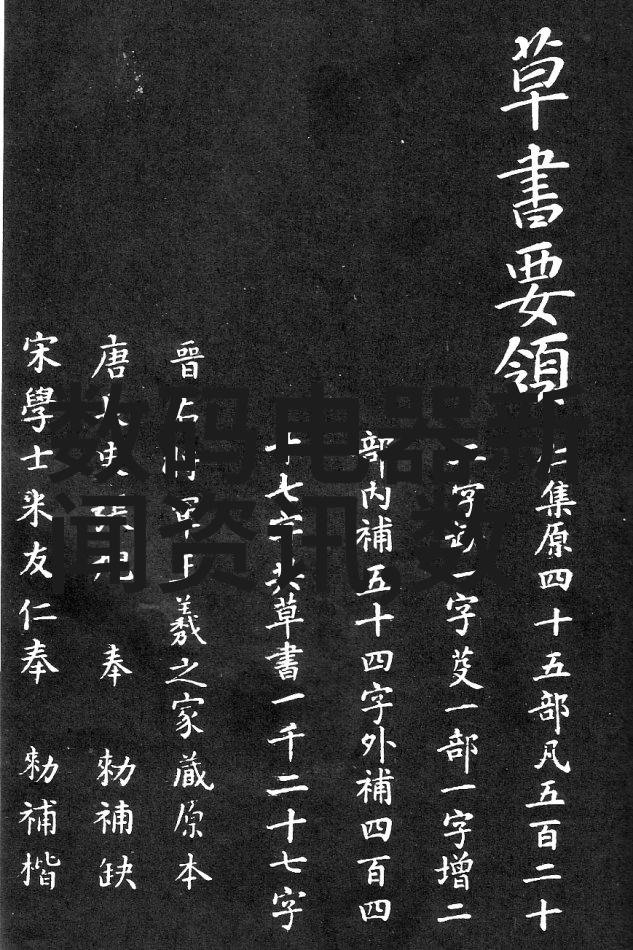 草書要領
仁集原四十五部凡五百二十
二字記一字芟一部一字增二
部內補五十四字外補四百四
十七字共草書一千二十七字
晉右將軍王羲之家藏原本
唐長史張旭 奉 勅補缺
宋學士米友仁奉 勅補楷
数码电器新
闻资讯,数